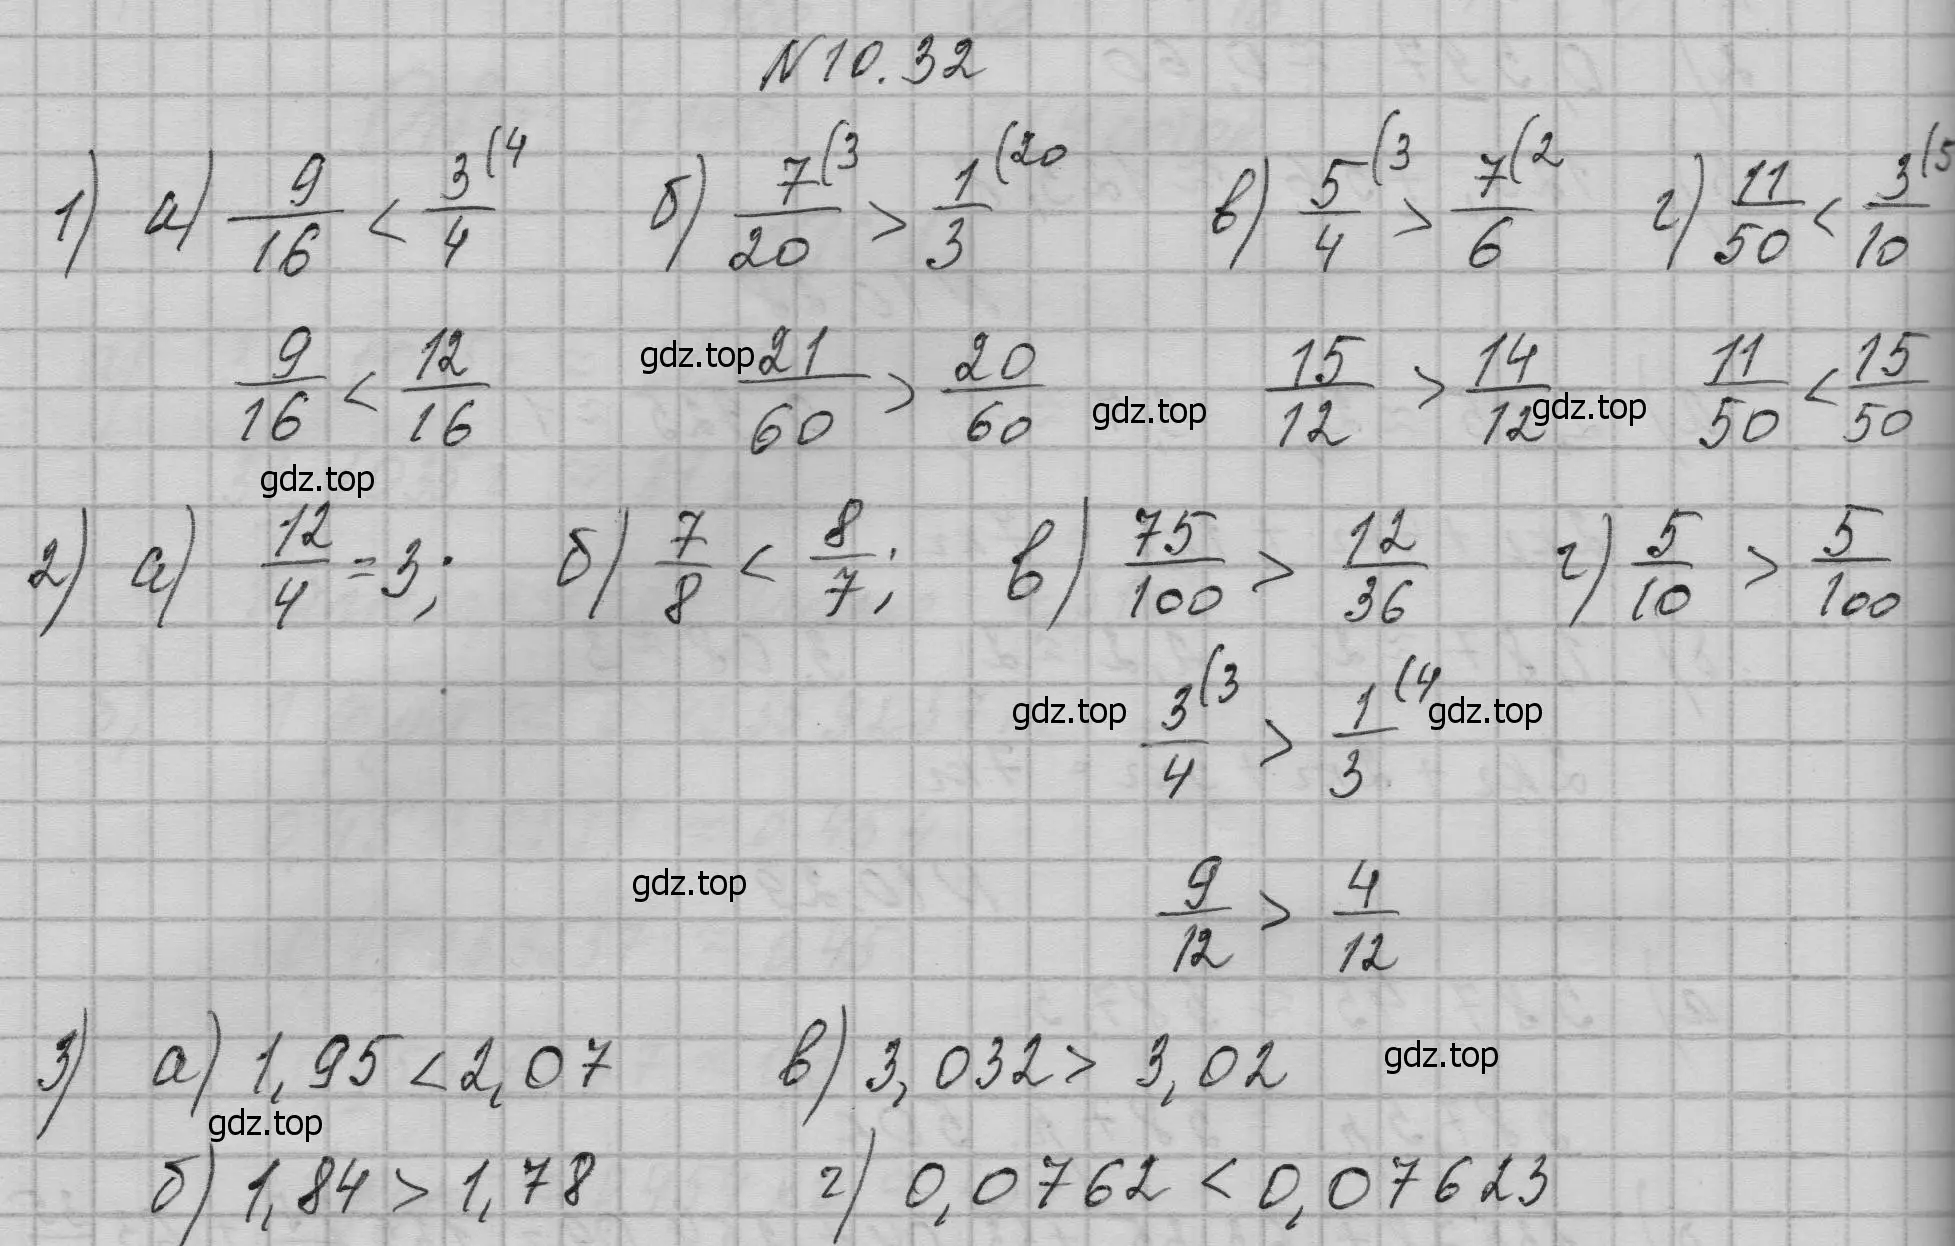 N 10.32
1) а) 9/16 < 3(4/4 б) 7(3/20 > 1(20/3 в) 5(3/4 > 7(2/6 г) 11/50 < 3(5/10
9/16 < 12/16 gdz.top 21/60 > 20/60 gdz.top 15/12 > 14/12 gdz.top 11/50 < 15/50
gdz.top
2) а) 12/4 = 3; б) 7/8 < 8/7; в) 75/100 > 12/36 г) 5/10 > 5/100
gdz.top 3(3/4 > 1(4/3 gdz.top
gdz.top 9/12 > 4/12
3) а) 1,95 < 2,07 в) 3,032 > 3,02 gdz.top
gdz.top
б) 1,84 > 1,78 г) 0,0762 < 0,07623